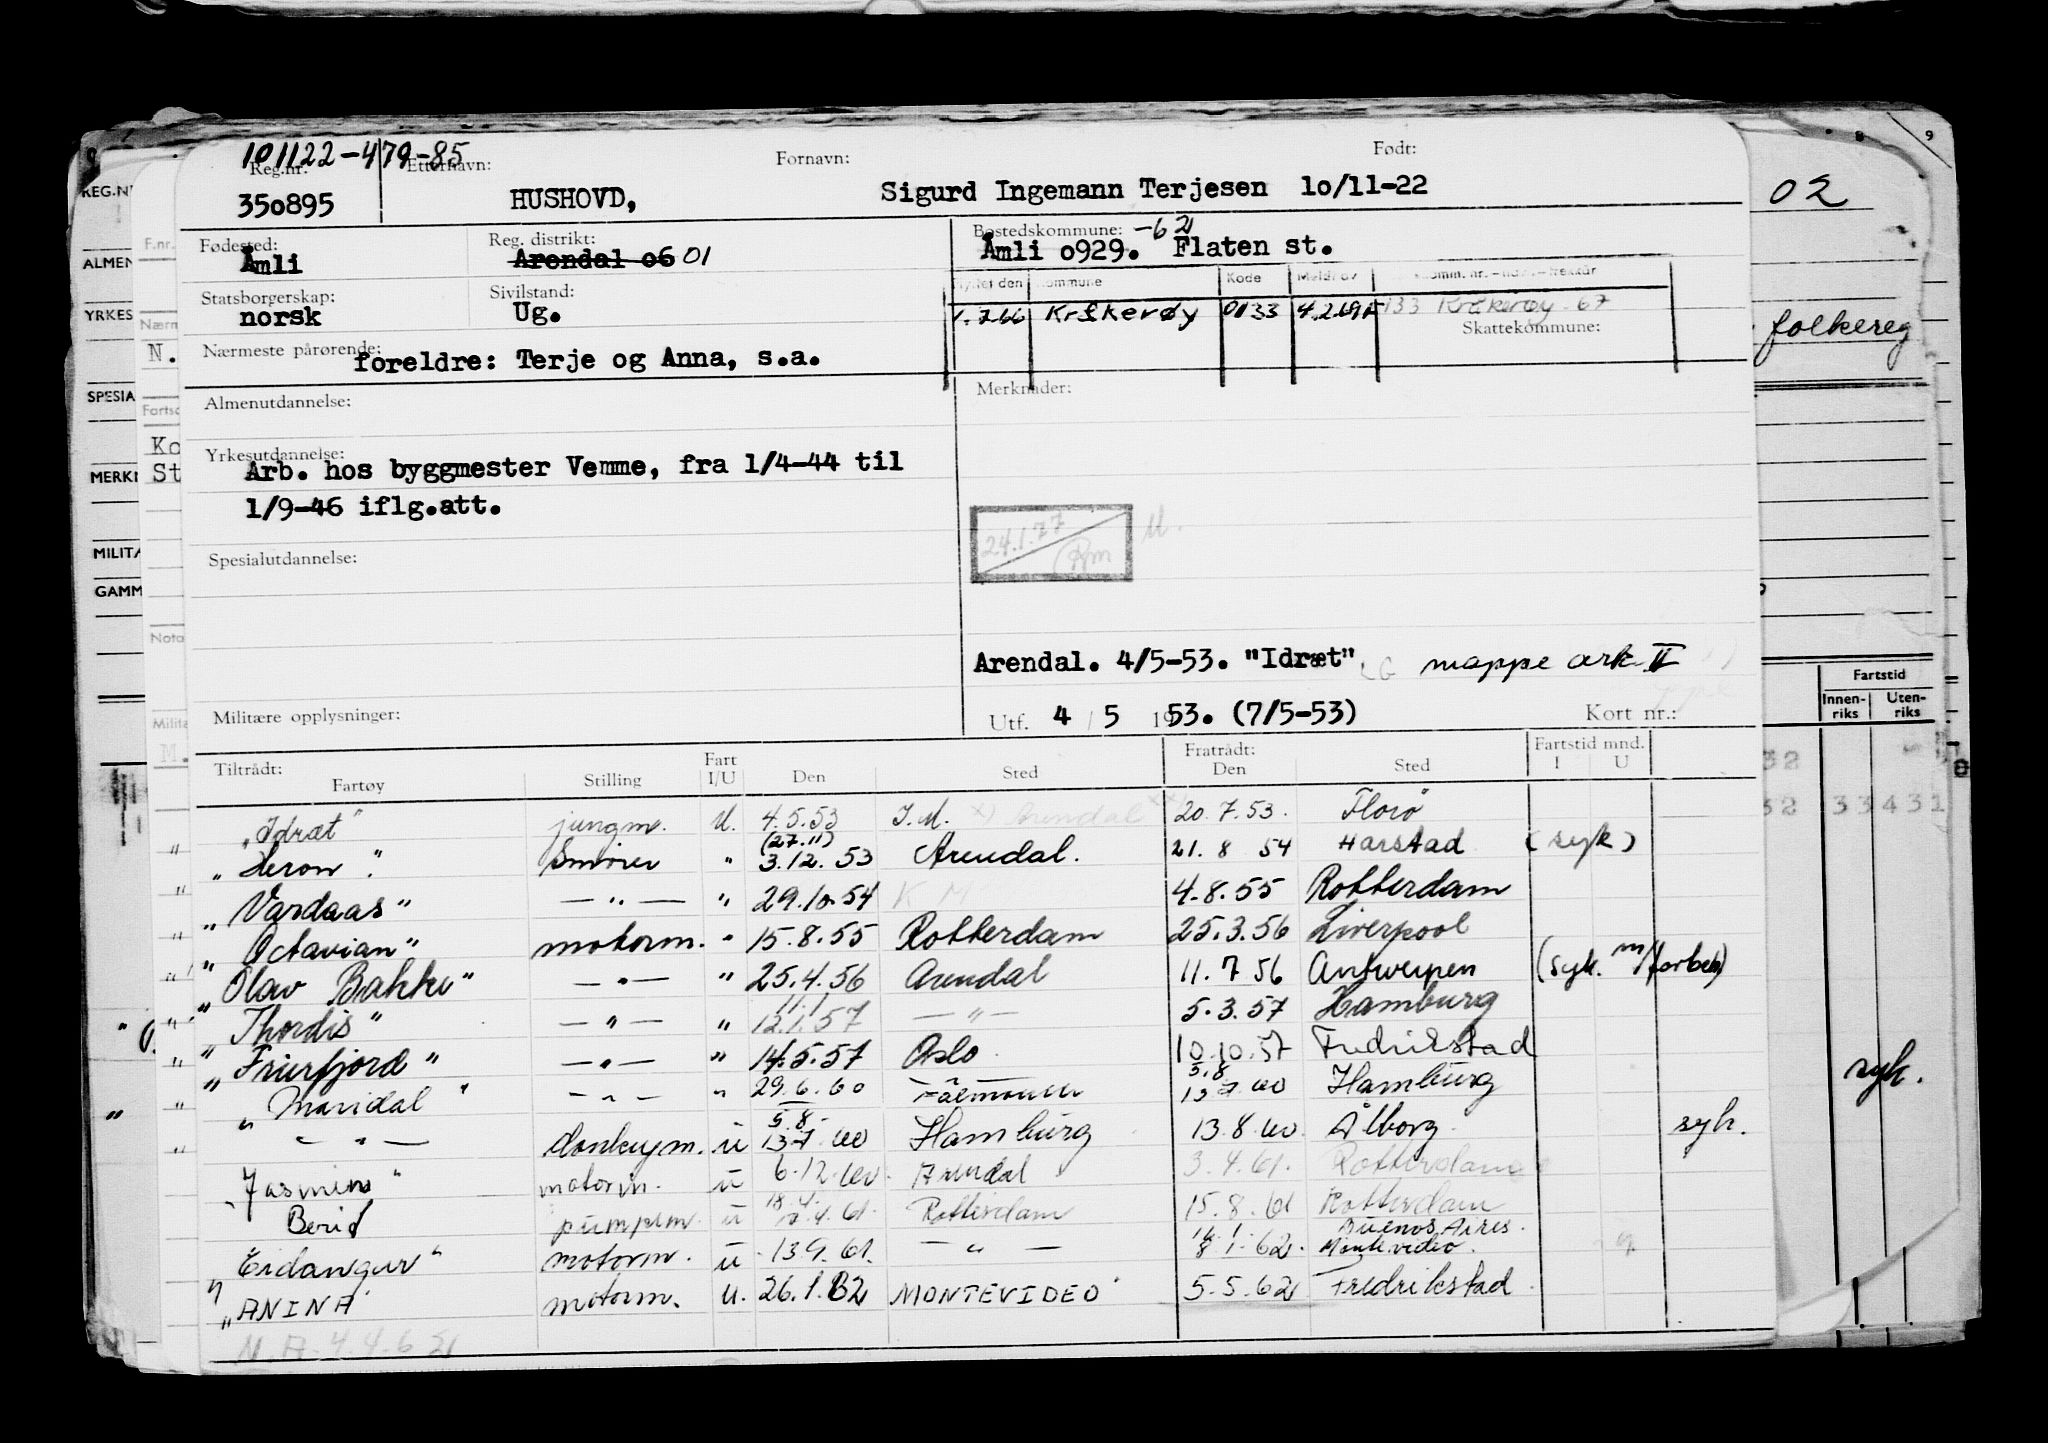 101122-479-85
Reg.nr. Etternavn: Fornavn: Født:
350895 HUSHOVD, Sigurd Ingemann Terjesen 10/11-22
Fødested: Reg. distrikt: Bostedskommune: -62
Åmli Arendal 06 01 Åmli 0929. Flaten st.
Statsborgerskap: Sivilstand: Kode
norsk Ug. 1.7.66 Kråkerøy 0133 133 Kråkerøy 67
Skattekommune:
Nærmeste pårørende:
foreldre: Terje og Anna, s.a.
Almenutdannelse: Merknader:
Yrkesutdannelse:
Arb. hos byggmester Vemme, fra 1/4-44 til
1/9-46 iflg.att.
24.1.77
Spesialutdannelse:
Arendal. 4/5-53. "Idræt" mappe ark II
Militære opplysninger: Utf. 4 / 5 1953. (7/5-53) Kort nr.:
Tiltrådt: Fart Fratrådt: Fartstid mnd.
Fartøy Stilling I/U Den Sted Den Sted I U
„Idræt" jungm. U. 4.5.53 I.M. Arendal 20.7.53. Florø
(27.11)
„Heron". Smører " 3.12.53 Arendal. 21.8 54 Harstad (syk)
„Vardaas" — " — " 29.10.54 4.8.55 Rotterdam
„Octavian" motorm. " 15.8.55 Rotterdam 25.3.56 Liverpool
„Olav Bakke" — " — " 25.4.56 Arendal 11.7 56 Antwerpen (syk. m/forbeh)
11.1
„Thordis" — " — " 12.1.57 — " — 5.3.57 Hamburg
„Frierfjord" — " — " 14.5.57 Oslo. 10.10.57 Fredrikstad
5.8
„Maridal" — " — " 29.6.60 Falmouth 13.7.60 Hamburg
5.8.
— " — donkeym. u 13.7.60 Hamburg 13.8.60. Ålborg. syk.
„Jasmin" motorm. u 6.12.60. Arendal 3.4.61. Rotterdam
18.4.
Berit pumpem. u 4.61. Rotterdam 15.8.61 Rotterdam
Buenos Aires.
„Eidanger" motorm. u 13.9.61. — " — 8.1.62. Montevideo.
„ANINA" motorm. u. 26.1.62 MONTEVIDEO 5.5.62 Fredrikstad
REG.N
ALMEN
YRKES
SPESIA
MERK
MILITA
GAMM
F.nr.
N.
Ko
St
Nota
M.
8 9
02
folkereg
Fartstid
Innen-
riks
Uten-
riks
32
32 33 431
syk.